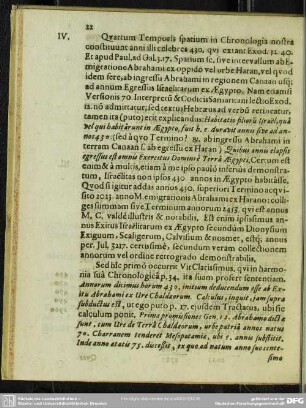 22
IV. Quartum Temporis spatium in Chronologia nostra
constituunt anni illi celebres 430, qvi extant Exod. 12. 40.
Et apud Paul. ad Gal. 3. 17. Spatium sc. sive intervallum ab E-
migratione Abrahami ex oppido vel orbe Haran, vel qvod
idem fere, ab ingressu Abrahami in regionem Canaan usq;
ad annum Egressus Israelitarum ex Ægypto. Nam etiamsi
Versionis 70. Interpretũ & Codicis Samaritani lectio Exod.
12. nõ admittatur, sed textus Hebræus ad verbũ retineatur,
tamen ita (puto) erit explicandus: Habitatio filiorũ Israël, quâ
vel qui habitârunt in Ægypto, fuit h. e. duravit annis sive ad an-
nos 430 (sed à qvo Termino? R. ab ingressu Abrahami in
terram Canaan f. ab egressu ex Haran) Quibus annis elapsis
egressus est omnis Exercitus Domini è Terrâ Ægypti, Certum est
enim & à multis, etiam à me ipso paulò inferiùs demonstra-
tum, Israëlitas non ipsos 430 annos in Ægypto habitâsse.
Qvod si igitur addas annos 430. superiori Termino acqvi-
sito 2023. anno M. emigrationis Abrahami ex Harano: colli-
ges summam sive Terminum annorum 2453. qvi est annus
M. C. valdè illustris & notabilis, Est enim ipsissimus an-
nus Exitus Israëlitarum ex Ægypto secundùm Dionysium
Exiguum, Scaligerum, Calvisium & nosmet, estq; annus
per. Jul. 3217. certissimè; secundum veram collectionem
annorum vel ordine retrogrado demonstrabilis.
Sed hîc primò occurrit Vir Clarissimus, qvi in harmo-
nia suâ Chronologicâ p. 34. ita suam profert sententiam.
Annorum dicimus horum 430. initium deducendum esse ab Exi-
tu Abrahami ex Ure Chaldæorum. Calculus, inquit, jam suprà
subductus est, utego puto p. 27. ejusdem Tractatus, ubi sic
calculum ponit. Primæ promissiones Gen. 12. Abrahamo dictæ
sunt, cum Ure de Terrâ Chaldæorum, urbe patriâ annos natus
70. Charranem tenderet Mesopotamiæ, ubi 5. annis subsistit,
Inde anno ætatis 75. discessit, ex quo ad natum anno suo cente-
simo